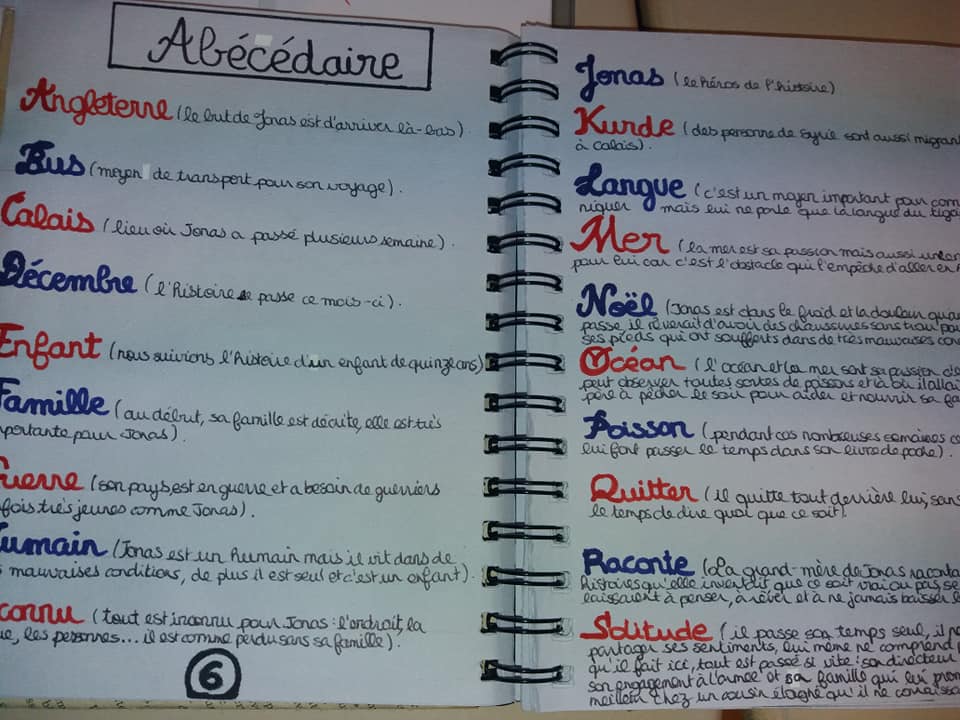 Abécédaire
Angleterre (le but de Jonas est d'arriver là-bas).
Bus (moyen de transport pour son voyage).
Calais (lieu où Jonas a passé plusieurs semaine).
Décembre (l'histoire se passe ce mois-ci).
Enfant (nous suivions l'histoire d'un enfant de quinze ans)
Famille (au début, sa famille est décrite, elle est très
portante pour Jonas).
Guerre (son pays est en guerre et a besoin de guerriers
fois très jeunes comme Jonas).
Humain (Jonas est un humain mais il vit dans de
mauvaises conditions, de plus il est seul et c'est un enfant).
connu (tout est inconnu pour Jonas : l'endroit, la
les personnes... il est comme perdu sans sa famille).
6
Jonas (le héros de l'histoire)
Kurde (des personne de Syrie sont aussi migrant
à calais).
Langue (c'est un moyen important pour com
niquer mais lui ne parle que la langue du
Mer (la mer est sa passion mais aussi
pour lui car c'est l'obstacle qui l'empêche d'aller en
Noël (Jonas est dans le froid et la douleur
passe, il rêverait d'avoir des chaussures sans trou
ses pieds qui ont soufferts dans de très mauvaises
Océan (l'océan et la mer sont sa passion
peut observer toutes sortes de poissons et là où il allait
père à pêcher le soir pour aider et nourrir sa fa
Poisson (pendant ces nombreuses semaines
lui font passer le temps dans son livre de poche).
Quitter (il quitte tout derrière lui, sans
le temps de dire quoi que ce soit).
Raconte (La grand-mère de Jonas raconta
histoires qu'elle inventait que ce soit vrai ou pas, se
laissaient à penser, à rêver et à ne jamais baisser
Solitude (il passe son temps seul, il
partager ses sentiments, lui même ne comprend
qu'il fait ici, tout est passé si vite : son directeur
son engagement à l'armée et sa famille qui lui prom
meilleur chez un cousin éloigné qu'il ne connaissa